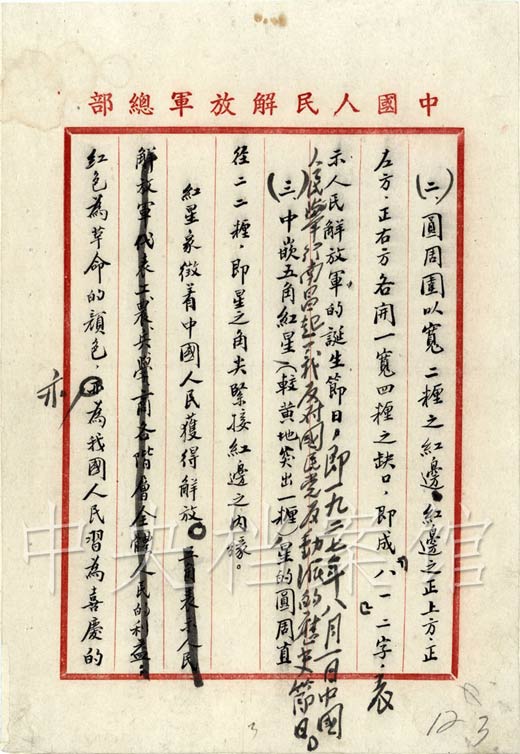 中國人民解放軍總部
(二)圓周圍以寬二糎之紅邊,紅邊之正上方.正
左方.正右方各開一寬四糎之缺口,即成「八一」二字.表
示人民解放軍的誕生節日,即一九二七年八月一日中國
人民舉行南昌起义反对國民党反動派的歷史節日。
(三)中嵌五角紅星(較黃地突出一糎)星的圓周直
徑二二糎,即星之角尖緊接紅邊之內緣。
紅星象徵着中國人民獲得解放。人民
解放軍代表工農兵學商各階層全體人民的利益;
紅色為革命的顏色,亦為我國人民習為喜慶的
3
12
3
中央档案馆